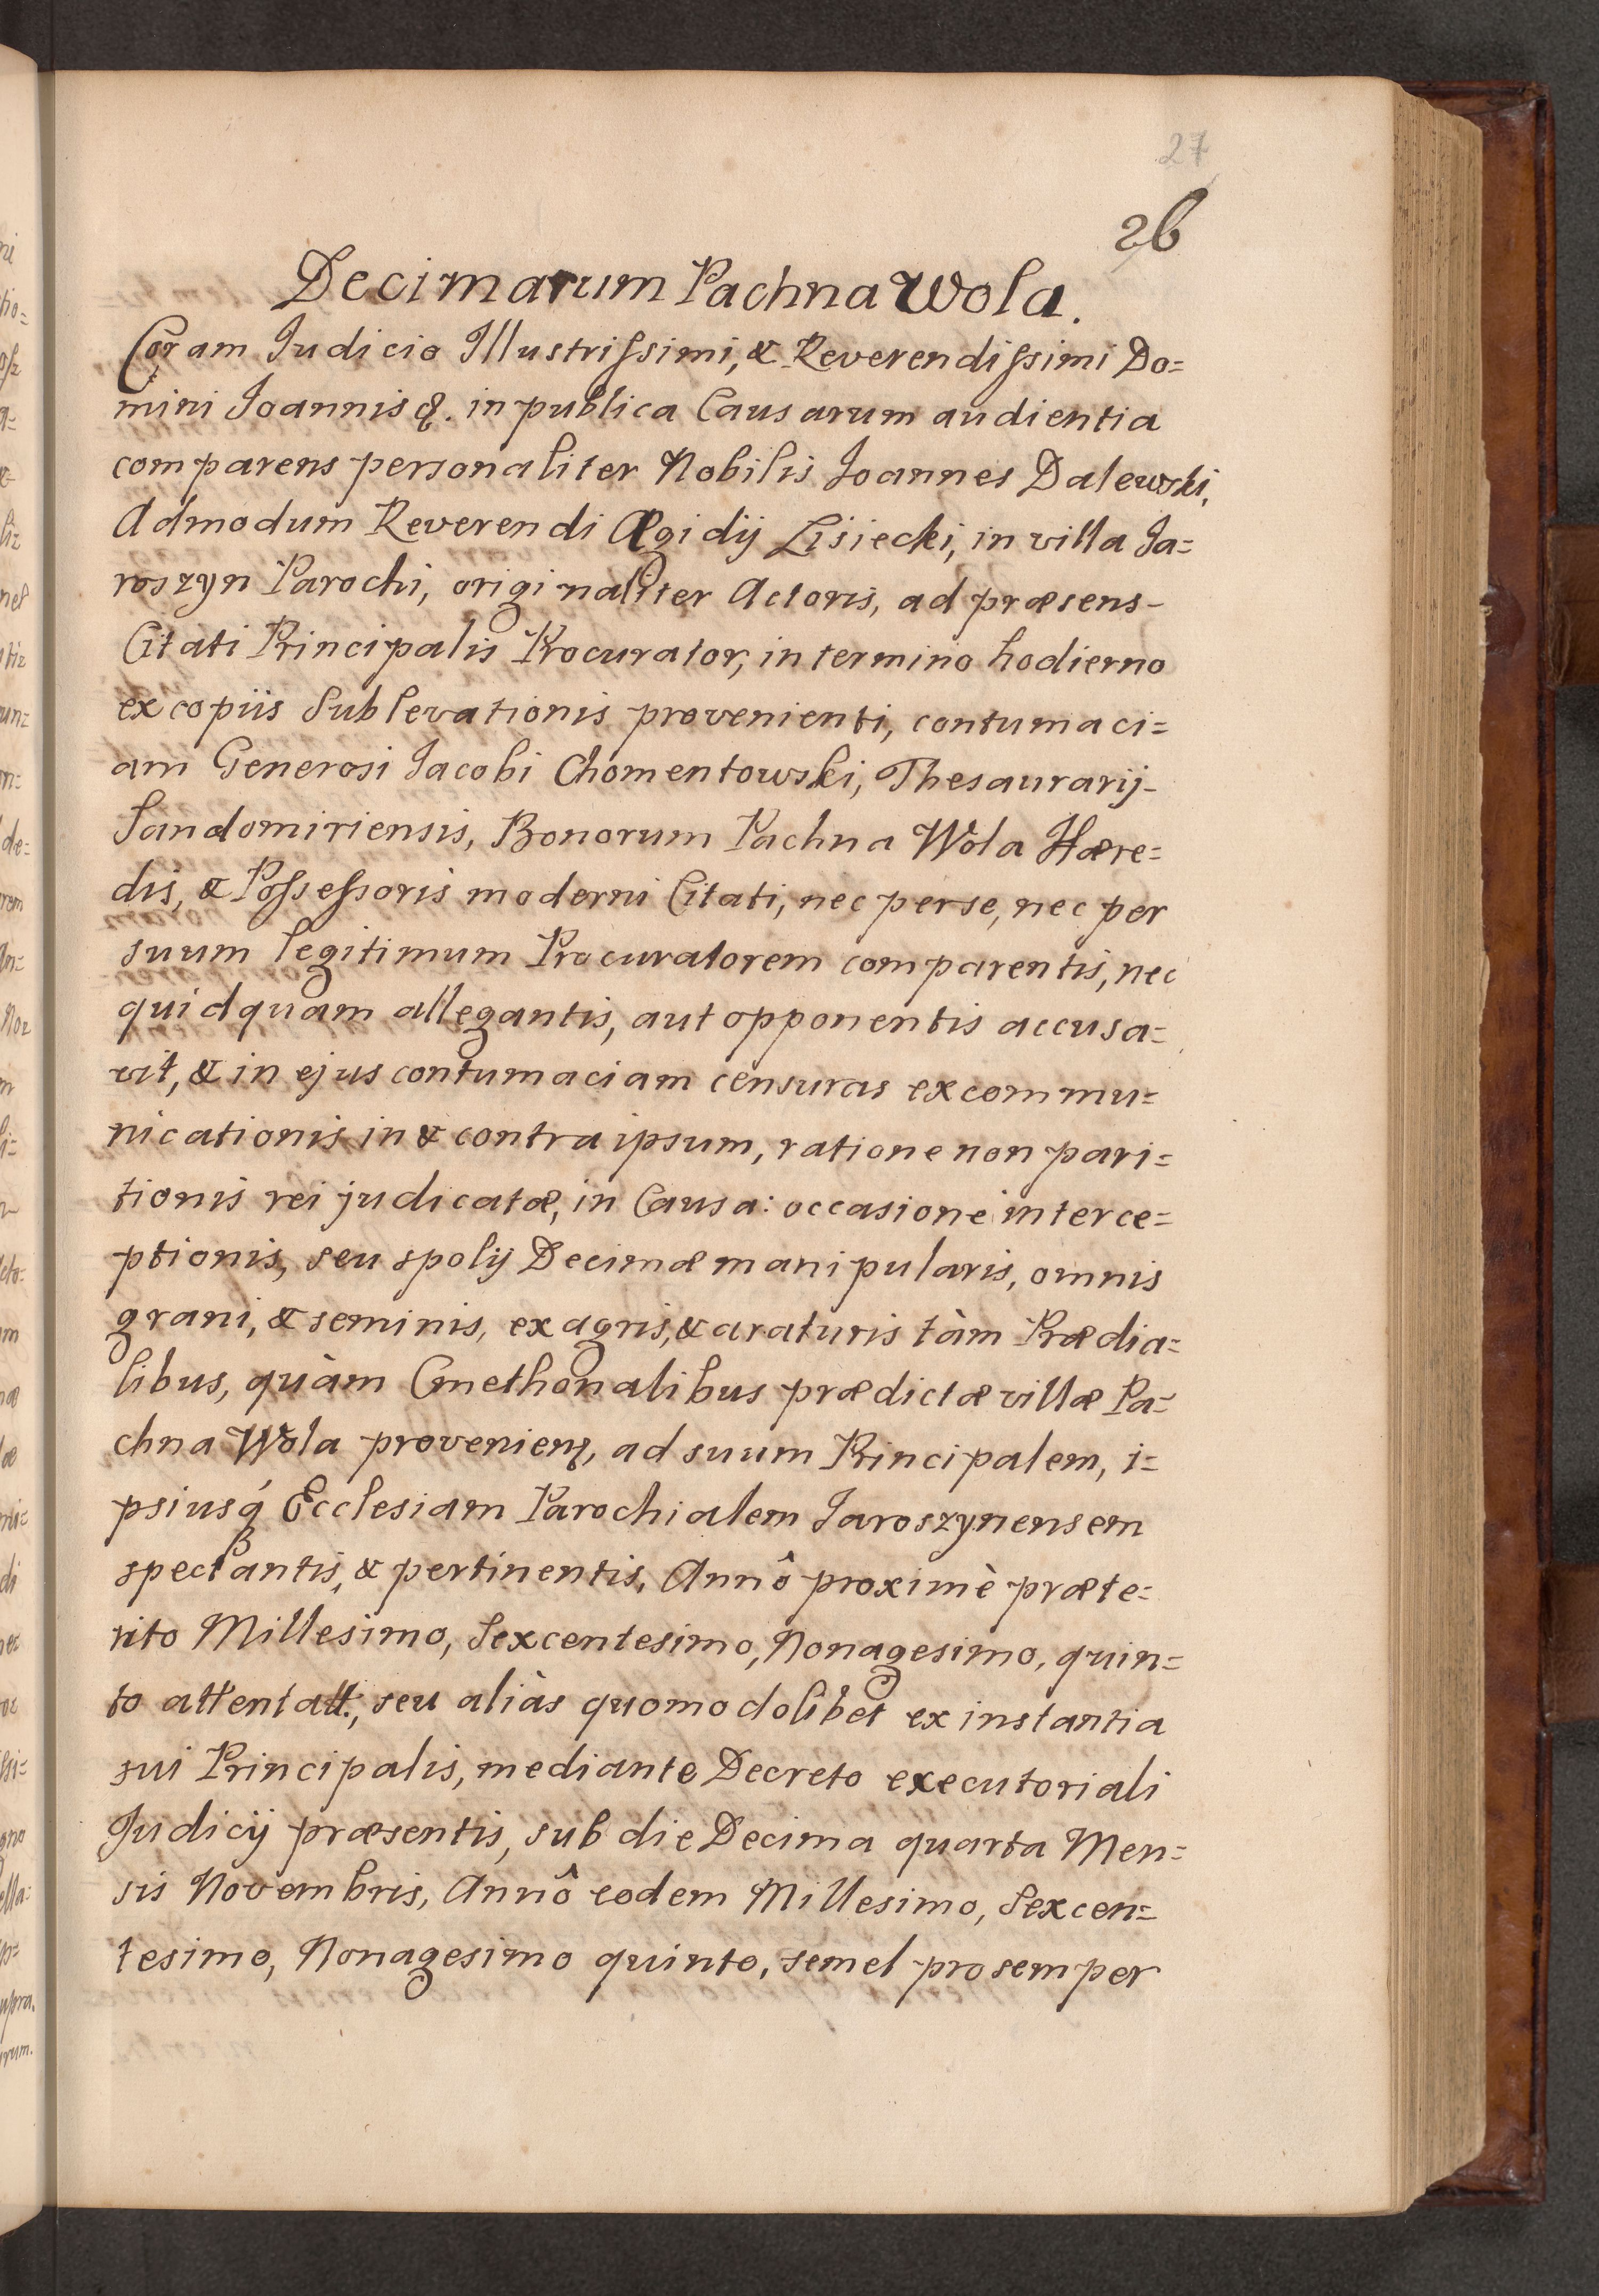 27
26
Decimarum Pachna Wola.
Coram Judicio Illustrissimi, & Reverendissimi Do=
mini Joannis &. in publica Causarum audientia
comparens personaliter Nobilis Joannes Dalewski,
Admodum Reverendi Ægidij Lisiecki, in villa Ja=
roszyn Parochi, originaliter Actoris, ad præsens-
Citati Principalis Procurator, in termino hodierno
ex copiis Sublevationis provenienti, contumaci=
am Generosi Jacobi Chomentowski, Thesaurarij-
Sandomiriensis, Bonorum Pachna Wola Hære=
dis, & Possessoris moderni Citati, nec per se, nec per
suum legitimum Procuratorem comparentis, nec
quidquam allegantis, aut opponentis accusa=
vit, & in ejus contumaciam censuras excommu=
nicationis in & contra ipsum, ratione non pari=
tionis rei judicatæ, in Causa: occasione interce=
ptionis, seu spolij Decimæ manipularis, omnis
grani, & seminis, ex agris, & araturis tàm Prædia=
libus, quàm Cmethonalibus prædictæ villæ Pa=
chna Wola provenienꝫ, ad suum Principalem, i=
psiusq́ Ecclesiam Parochialem Jaroszynensem
spectantis, & pertinentis, Annô proximè præte=
rito Millesimo, Sexcentesimo, Nonagesimo, quin=
to attentatt., seu aliàs quomodolibet ex instantia
sui Principalis, mediante Decreto executoriali
Judicij præsentis, sub die Decima quarta Men=
sis Novembris, Annô eodem Millesimo, Sexcen=
tesimo, Nonagesimo quinto, semel pro semper